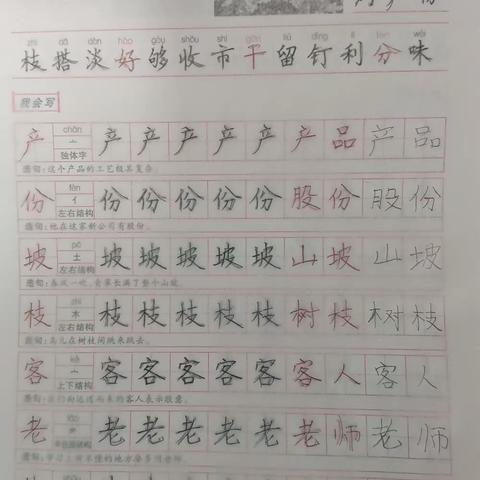 zhī dā dàn hǎo gòu shōu shì gān liú dīng lì fēn wèi
枝 搭 淡 好 够 收 市 干 留 钉 利 分 味
我会写
chǎn
产 亠 产 产 产 产 产 品 产 品
独体字
造句:这个产品的工艺极其复杂
fèn
份 亻 份 份 份 份 股 份 股 份
左右结构
造句:他在这家新公司有股份。
pō
坡 土 坡 坡 坡 坡 山 坡 山 坡
左右结构
造句:春风一吹,青草长满了整个山坡。
zhī
枝 木 枝 枝 枝 枝 树 枝 树 枝
左右结构
造句:鸟儿在树枝间跳来跳去。
kè
客 宀 客 客 客 客 客 人 客 人
上下结构
造句:我们向远道而来的客人表示敬意。
lǎo
老 耂 老 老 老 老 老 师 老 师
半包围结构
造句:学习上有不懂的地方要多问老师。